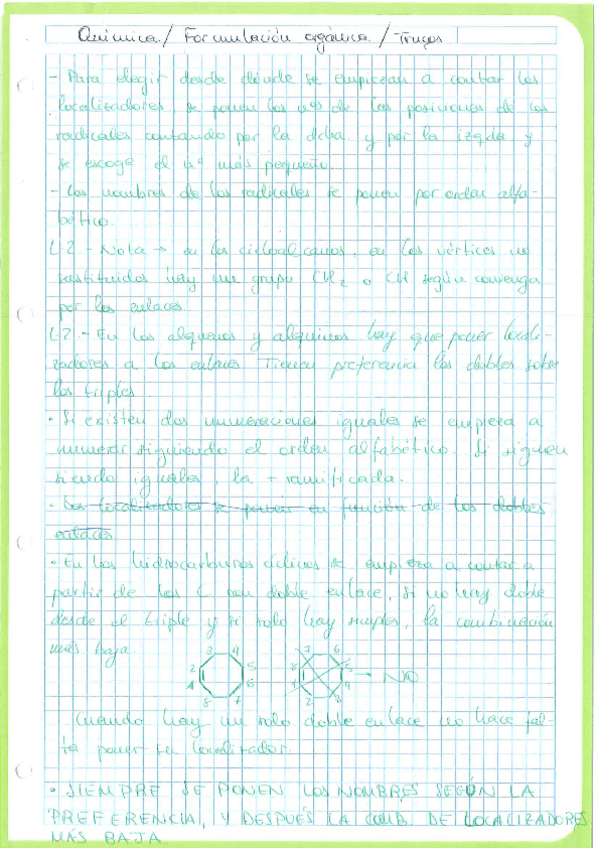 Química / Formulación orgánica / Trucos
- Para elegir desde dónde se empiezan a contar los
localizadores, se ponen los nºs de las posiciones de los
radicales contando por la dcha. y por la izqda y
se escoge el nº más pequeño.
- Los nombres de los radicales se ponen por orden alfa-
bético.
L.2 - Nota → en los cicloalcanos, en los vértices no
sustituidos hay un grupo CH2 o CH según convenga
por los enlaces.
L.2.- En los alquenos y alquinos hay que poner locali-
zadores a los enlaces. Tienen preferencia los dobles sobre
los triples.
· Si existen dos numeraciones iguales se empieza a
numerar siguiendo el orden alfabético. Si siguen
siendo iguales, la + ramificada.
· Los localizadores se ponen en función de los dobles
enlaces
· En los hidrocarburos cíclicos se empieza a contar a
partir de los C con doble enlace, si no hay doble
desde el triple y si solo hay simples, la combinación
más baja.
3 4 7 6
2 5 8 5 → NO
1 6 1 4
8 7 2 3
Cuando hay un solo doble enlace no hace fal-
ta poner su localizador.
· SIEMPRE SE PONEN LOS NOMBRES SEGÚN LA
PREFERENCIA, Y DESPUÉS LA COMB. DE LOCALIZADORES
MÁS BAJA